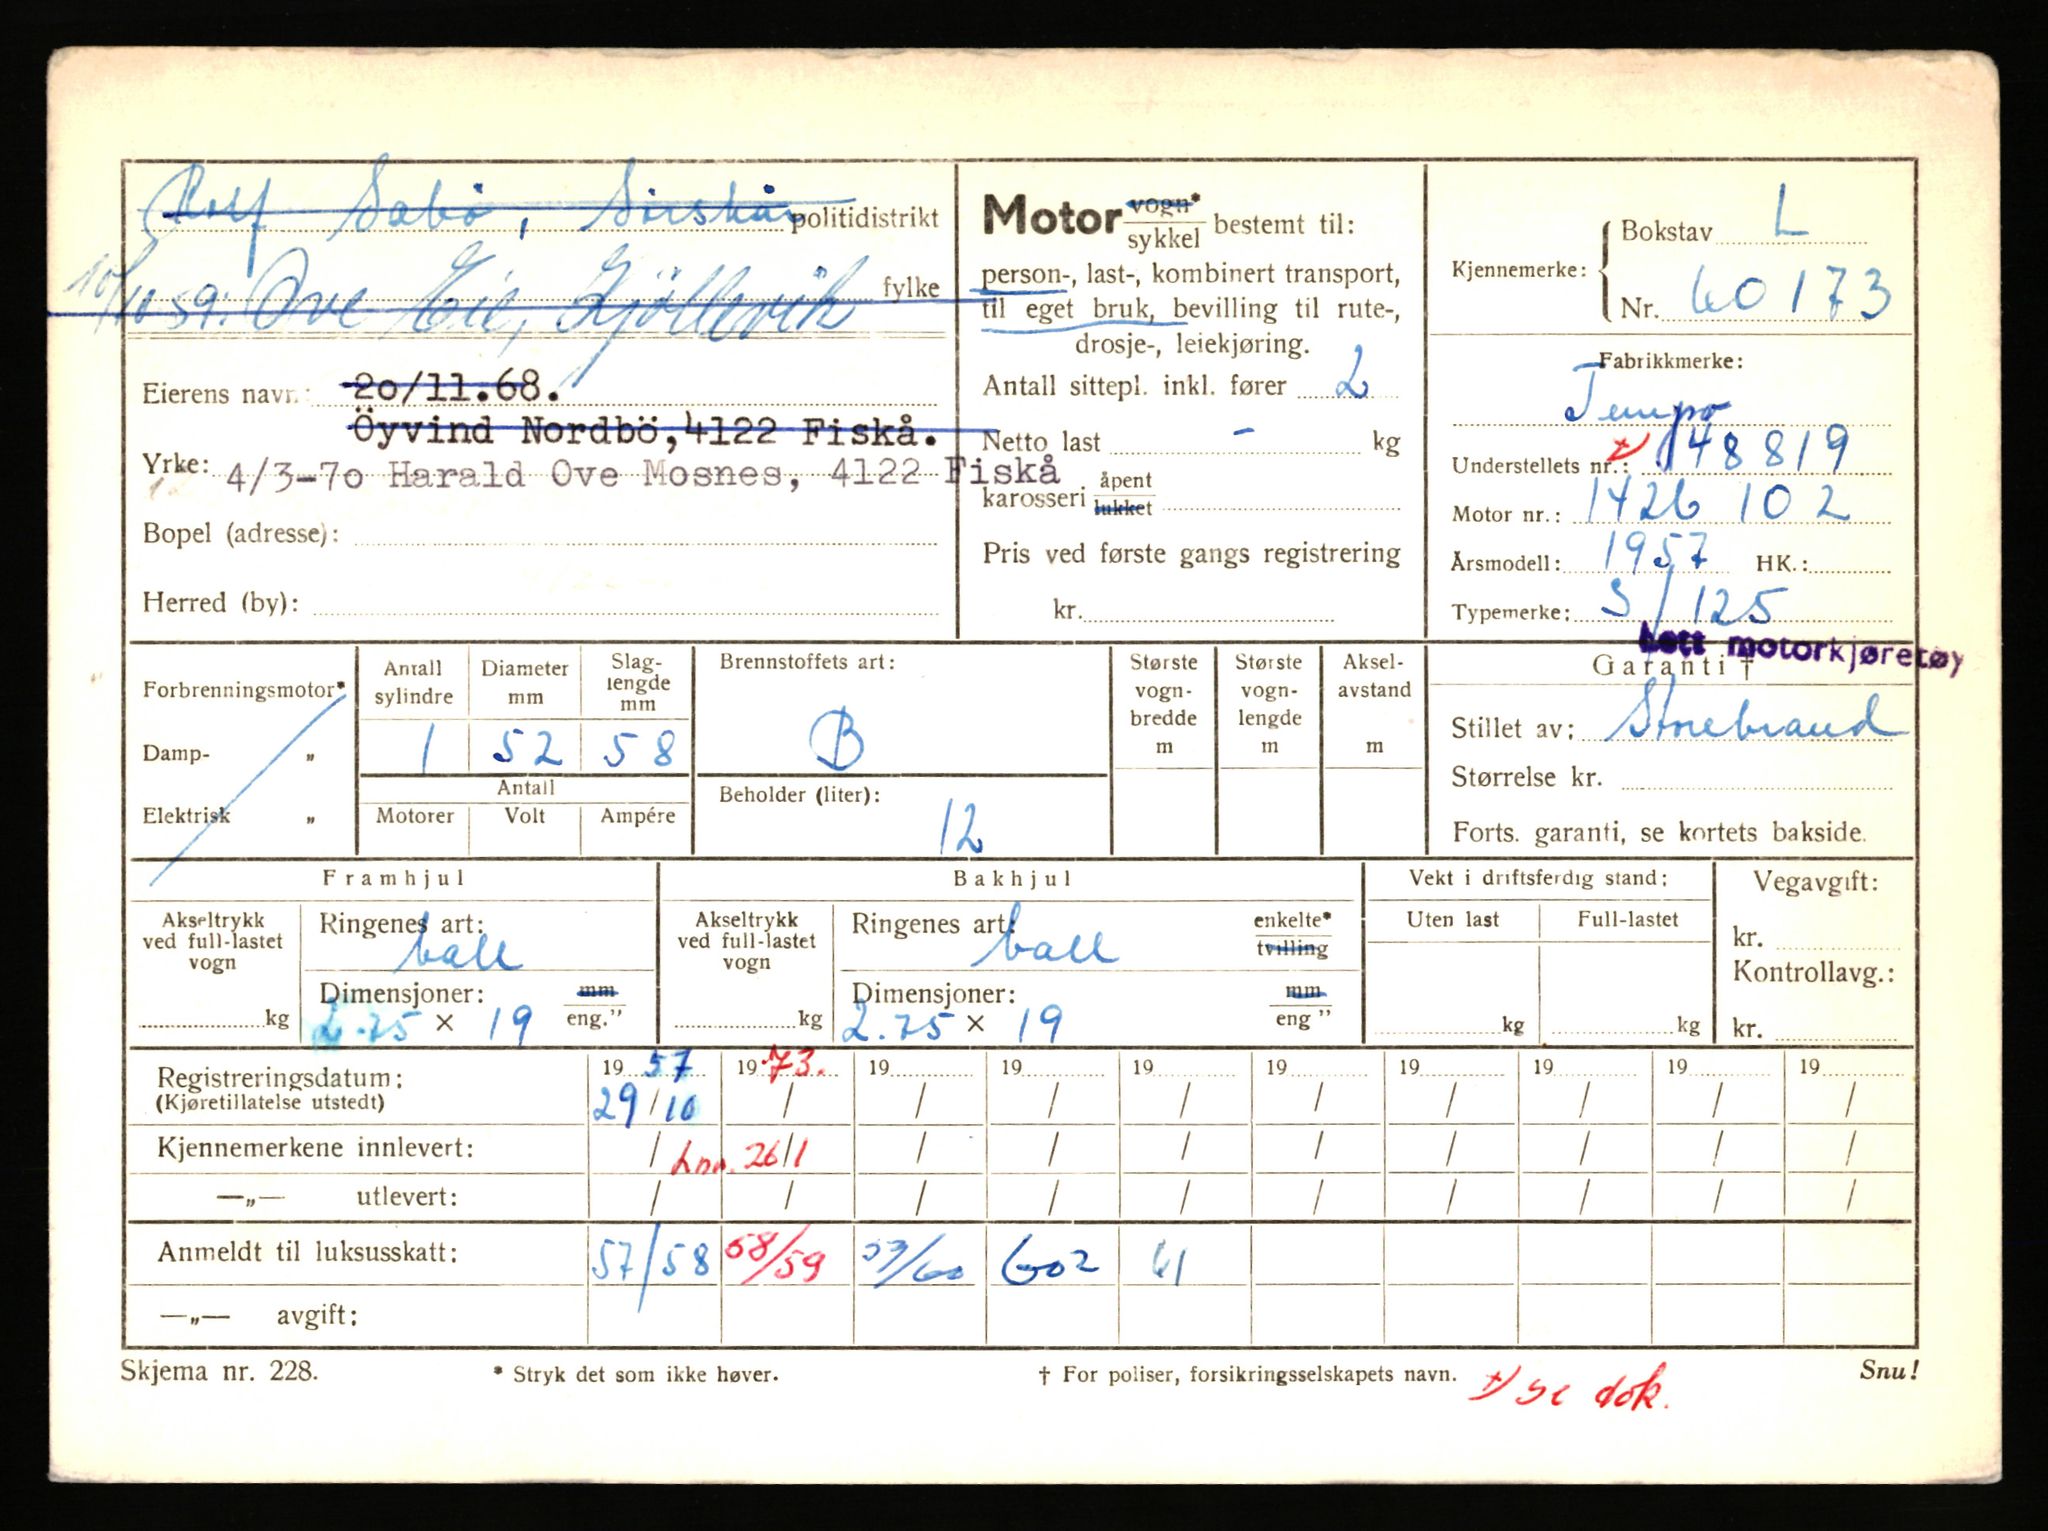 Rolf Sabö, Sirskår politidistrikt
10/10 59: Ove Eie, Gjöllevik fylke
Eierens navn: 20/11.68.
Öyvind Nordbö, 4122 Fiskå.
Yrke: 4/3-70 Harald Ove Mosnes, 4122 Fiskå
Bopel (adresse):
Herred (by):
Motor vogn* / sykkel bestemt til:
person-, last-, kombinert transport,
til eget bruk, bevilling til rute-,
drosje-, leiekjøring.
Antall sittepl. inkl. fører 2
Netto last - kg
karosseri åpent / lukket
Pris ved første gangs registrering
kr.
Kjennemerke: Bokstav L
Nr. 60173
Fabrikkmerke:
Tempo
Understellets nr.: x) 148819
Motor nr.: 1426 102
Årsmodell: 1957 HK.:
Typemerke: S/125
Lett motorkjøretøy
Garanti †
Stillet av: Storebrand
Størrelse kr.
Forts. garanti, se kortets bakside.
Forbrenningsmotor*
Damp- „
Elektrisk „
Antall sylindre Diameter mm Slag-lengde mm
1 52 58
Antall
Motorer Volt Ampére
Brennstoffets art:
B
Beholder (liter):
12
Største vogn-bredde m
Største vogn-lengde m
Aksel-avstand m
Framhjul
Akseltrykk ved full-lastet vogn
kg
Ringenes art:
ball
Dimensjoner: mm / eng."
2.75 x 19
Bakhjul
Akseltrykk ved full-lastet vogn
kg
Ringenes art: enkelte* / tvilling
ball
Dimensjoner: mm / eng "
2.75 x 19
Vekt i driftsferdig stand:
Uten last Full-lastet
kg kg
Vegavgift:
kr.
Kontrollavg.:
kr.
Registreringsdatum: 19 57 19 73. 19 19 19 19 19 19 19 19
(Kjøretillatelse utstedt) 29/10 / / / / / / / / /
Kjennemerkene innlevert: / 26/1 / / / / / / / /
—„— utlevert: / / / / / / / / / /
Anmeldt til luksusskatt: 57/58 58/59 59/60 602 61
—„— avgift:
Skjema nr. 228. * Stryk det som ikke høver. † For poliser, forsikringsselskapets navn. x) se dok. Snu!